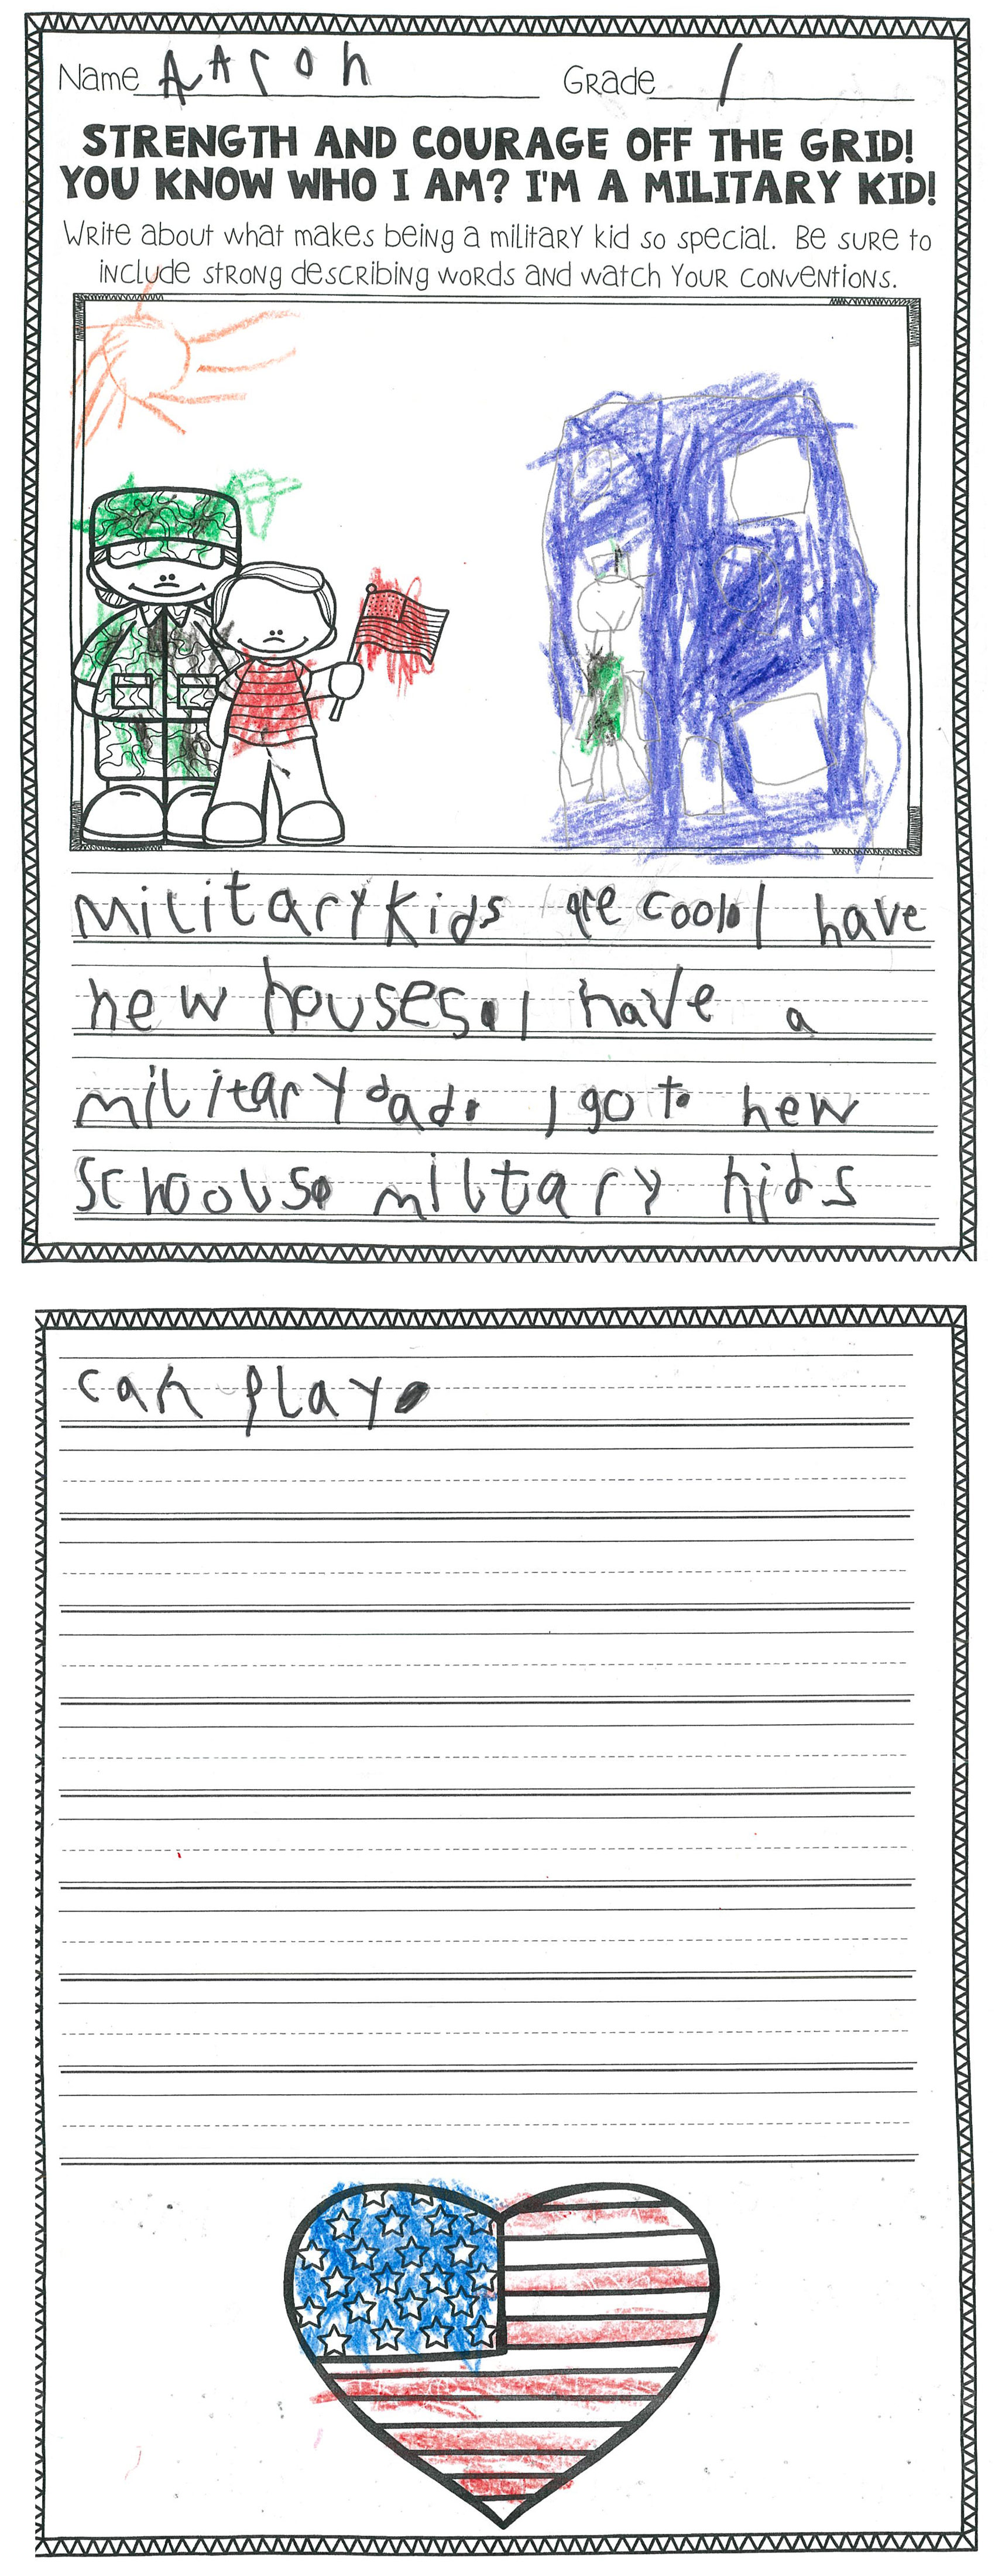 Name AAron Grade 1
STRENGTH AND COURAGE OFF THE GRID!
YOU KNOW WHO I AM? I'M A MILITARY KID!
Write about what makes being a military kid so special. Be sure to
include strong describing words and watch your conventions.
Military Kids are cool. I have
new houses. I have a
military dad. I go to new
Schools. miltary kids
can play.